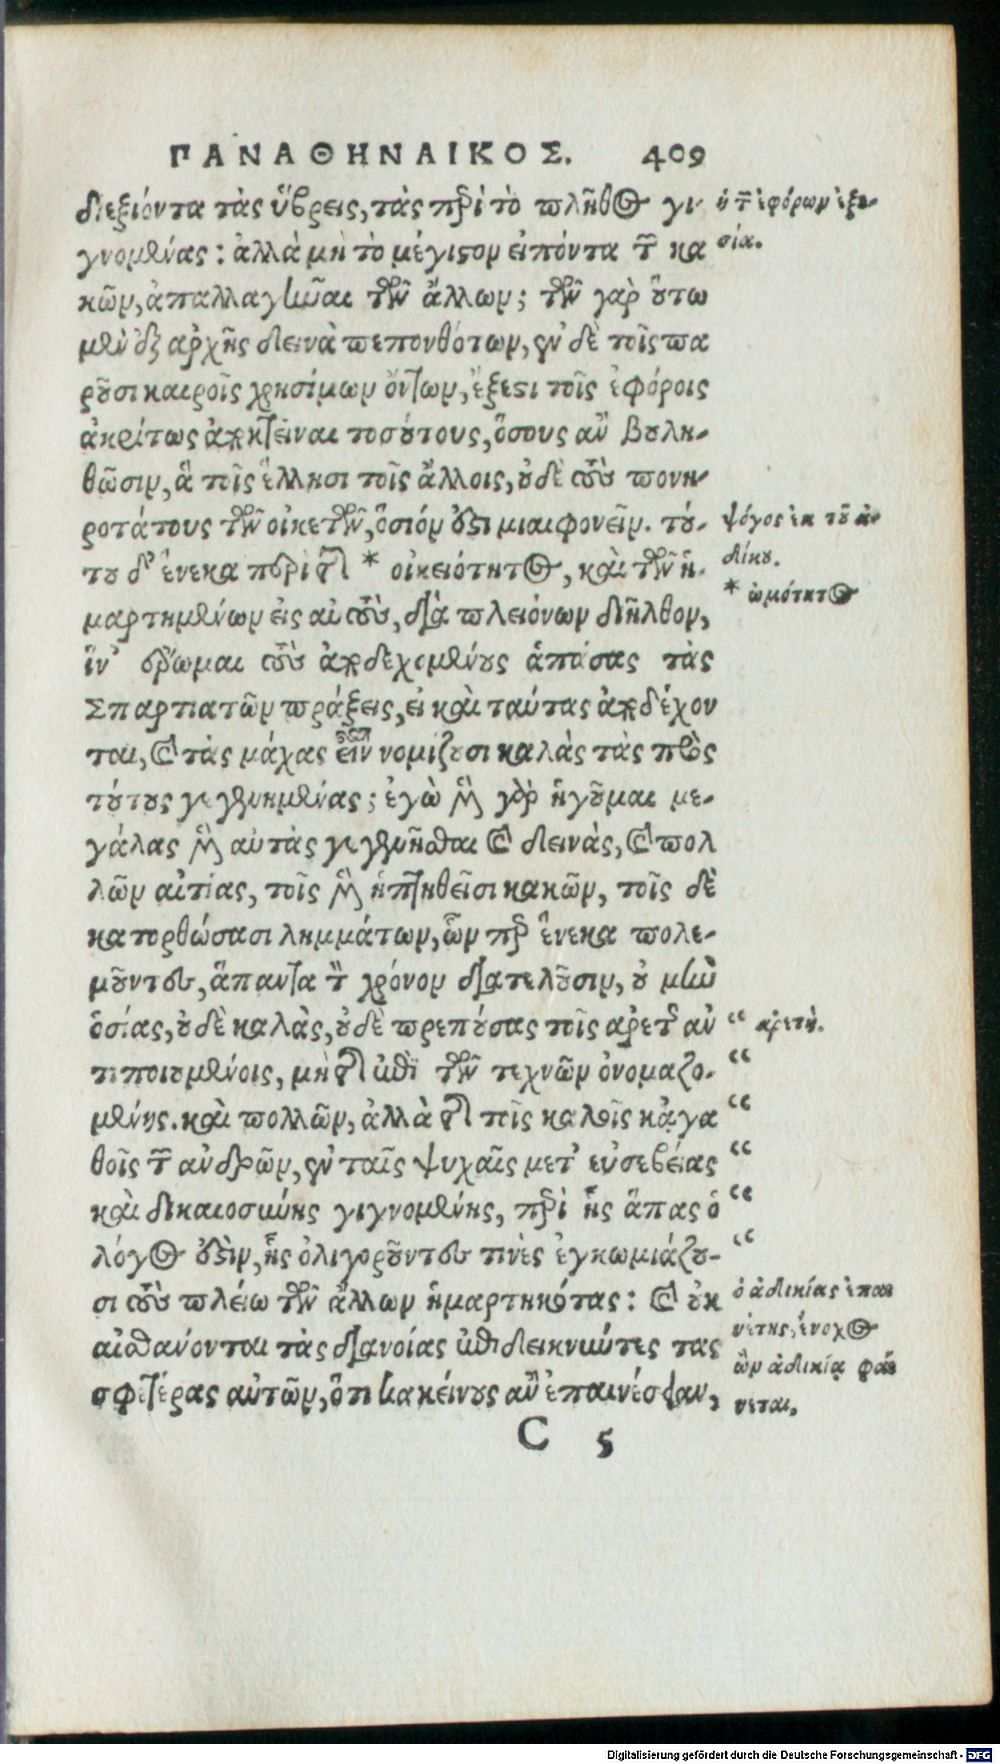 ΠΑΝΑΘΗΝΑΙΚΟΣ. 409
διεξιόντα τὰς ὕβρεις, τὰς πρὶ τὸ πλῆθος γι-
γνομένας: ἀλλὰ μὴ τὸ μέγιστον εἰπόντα τῶν κα
κῶν, ἀπαλλαγῆναι τῶν ἄλλων; τῶν γὰρ οὕτω
μὲν ἐξ ἀρχῆς δεινὰ πεπονθότων, ἐν δὲ τοῖς πα
ροῦσι καιροῖς χρησίμων ὄντων, ἔξεστι τοῖς ἐφόροις
ἀκρίτως ἀποκτεῖναι τοσούτους, ὅσους ἂν βουλη-
θῶσιν, ἃ τοῖς ἕλλησι τοῖς ἄλλοις, οὐδὲ τοὺς πονη-
ροτάτους τῶν οἰκετῶν, ὅσιόν ἐστι μιαιφονεῖν. τού-
του δ' ἕνεκα περὶ τῆς * οἰκειότητος, καὶ τῶν ἡ-
μαρτημένων εἰς αὐτοὺς, διὰ πλειόνων διῆλθον,
ἵν' ἔρωμαι τοὺς ἀποδεχομένους ἁπάσας τὰς
Σπαρτιατῶν πράξεις, εἰ καὶ ταύτας ἀποδέχον
ται, καὶ τὰς μάχας εἶναι νομίζουσι καλὰς τὰς πρὸς
τούτους γεγενημένας; ἐγὼ μὲν γὰρ ἡγοῦμαι με-
γάλας μὲν αὐτὰς γεγενῆσθαι καὶ δεινὰς, καὶ πολ
λῶν αἰτίας, τοῖς μὲν ἡττηθεῖσι κακῶν, τοῖς δὲ
κατορθώσασι λημμάτων, ὧνπερ ἕνεκα πολε-
μοῦντες, ἅπαντα τὸν χρόνον διατελοῦσιν, οὐ μὴν
ὁσίας, οὐδὲ καλὰς, οὐδὲ πρεπούσας τοῖς ἀρετῆς ἀν “
τιποιουμένοις, μὴ τῆς ἐπὶ τῶν τεχνῶν ὀνομαζο- “
μένης. καὶ πολλῶν, ἀλλὰ τῆς τοῖς καλοῖς κἀγα “
θοῖς τῶν ἀνδρῶν, ἐν ταῖς ψυχαῖς μετ' εὐσεβείας “
καὶ δικαιοσύνης γιγνομένης, περὶ ἧς ἅπας ὁ “
λόγος ἐστὶν, ἧς ὀλιγοροῦντες τινὲς ἐγκωμιάζου- “
σι τοὺς πλείω τῶν ἄλλων ἡμαρτηκότας: καὶ οὐκ
αἰσθάνονται τὰς διανοίας ἐπιδεικνύντες τας
σφετέρας αὐτῶν, ὅτι κακείνους ἂν ἐπαινέσειαν,
C 5
ἡ τῶν ἐφόρων ἐξου-
σία.
ψόγος ἐκ τοῦ ἀ-
δίκου.
* ὠμότητος
ἀρετή.
ὁ ἀδικίας ἐπαι
νέτης, ἔνοχος
ὢν ἀδικίᾳ φαί
νεται.
Digitalisierung gefördert durch die Deutsche Forschungsgemeinschaft - DFG